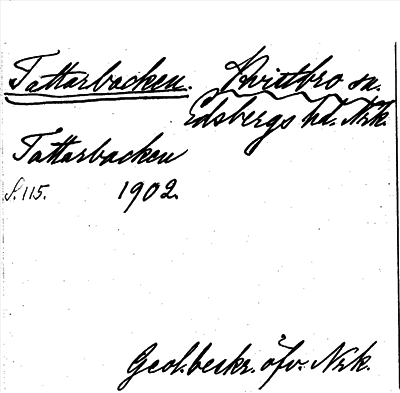 Tattarbacken. Kvistbro sn.
Edsbergs hd. Nrk.
Tattarbacken
S. 115. 1902.
Geol. beskr. öfv. Nrk.